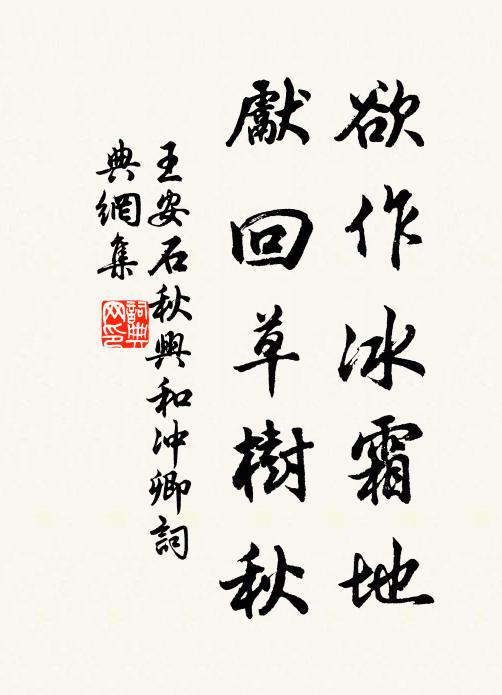 欲作冰霜地
獻回草樹秋
王安石秋興和沖卿詞
典網集
詞典
网印